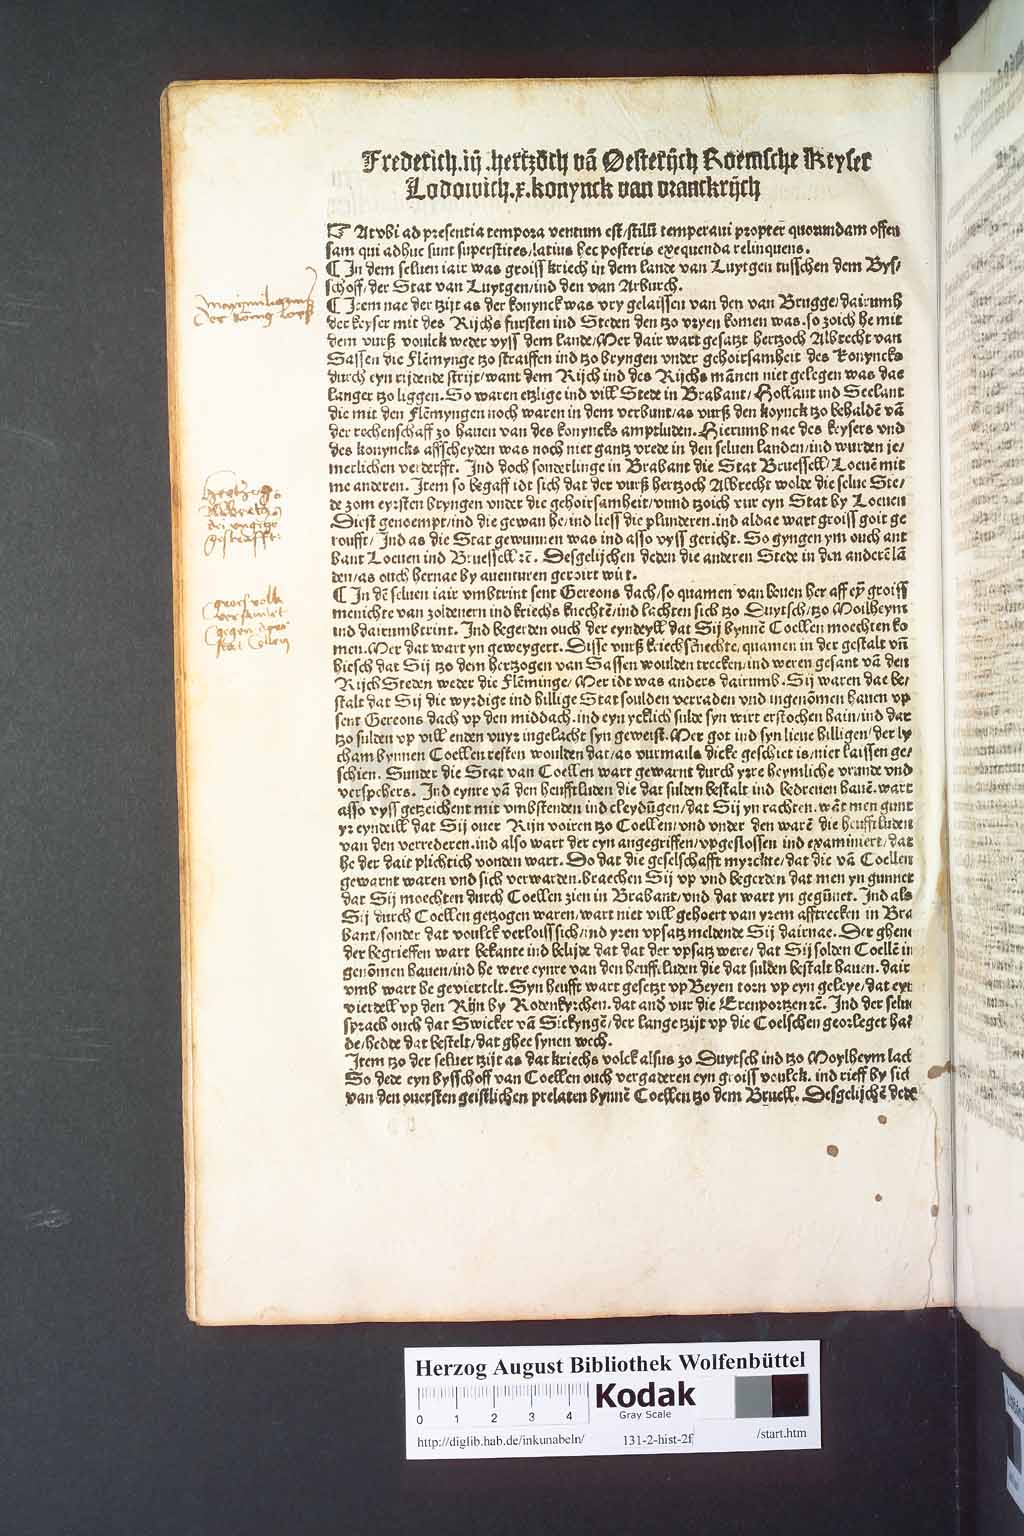 Frederich.iij.hertzoch vā Oesterijch Roemsche Keyser
Lodowich.x.konynck van vranckrijch
☞ At vbi ad presentia tempora ventum est/stilū temperaui propter quorumdam offen
sam qui adhuc sunt superstites/latius hec posteris exequenda relinquens.
¶ Jn dem seluen iair was groiss kriech in dem lande van Luytgen tusschen dem Bys/
schoff/der Stat van Luytgen/ind den van Arburch.
maximilianus
der konig loess
¶ Jtem nae der tzijt as der konynck was vry gelaissen van den van Brugge/dairumb
der keyser mit des Rijchs fursten ind Steden den tzo vryen komen was.so zoich he mit
dem vurß voulck weder vyss dem lande/Mer dair wart gesatzt hertzoch Albrecht van
Sassen die Flemynge tzo straiffen ind tzo bryngen vnder gehoirsamheit des Konyncks
durch eyn rijdende strijt/want dem Rijch ind des Rijchs mānen niet gelegen was dae
langer tzo liggen. So waren etzlige ind vill Stede in Brabant/Hollant ind Seelant
die mit den Flemyngen noch waren in dem verbunt/as vurß den koynck tzo behaldē vā
der rechenschaff zo hauen van des konyncks amptluden. Hierumb nae des keysers vnd
des konyncks affscheyden was noch niet gantz vrede in den seluen landen/ind wurden je/
merlichen verderfft. Jnd doch sonderlinge in Brabant die Stat Bruessell/Loeuē mit
me anderen. Jtem so begaff idt sich dat der vurß hertzoch Albrecht wolde die selue Ste/
de zom eyrsten bryngen vnder die gehoirsamheit/vnnd tzoich vur eyn Stat by Loeuen
Diest genoempt/ind die gewan he/ind liess die plunderen.ind aldae wart groiss goit ge
roufft/Jnd as die Stat gewunnen was ind also vyss gericht. So gyngen ym ouch ant
hant Loeuen ind Bruessell ꝛc. Desgelijchen deden die anderen Stede in den anderē lā
den/as ouch hernae by auenturen geroirt wirt.
Hertzog
Albretz
gestrafft:
¶ Jn dē seluen iair vmbtrint sent Gereons dach/so quamen van bouen her aff eȳ groiss
menichte van zoldenern ind kriechs knechtē/ind lachten sich tzo Duytsch/tzo Moilheym
ind dairumbtrint. Jnd begerden ouch der eyndeyll dat Sij bynnē Coellen moechten ko
men.Mer dat wart yn geweygert. Disse vurß kriechsknechte, quamen in der gestalt vñ
hiesch dat Sij tzo dem hertzogen van Sassen woulden trecken/ind weren gesant vā den
Rijch Steden weder die Fleminge/Mer idt was anders dairumb.Sij waren dae be/
stalt dat Sij die wyrdige ind hillige Stat soulden verraden vnd ingenōmen hauen vp
sent Gereons dach vp den middach.ind eyn ycklich sulde syn wirt erstochen hain/ind dar
tzo sulden vp vill enden vuyr ingelacht syn geweist.Mer got ind syn lieue hilligen/der ly
cham bynnen Coellen resten woulden dat/as vurmails dicke geschiet is/niet laissen ge/
schien. Sunder die Stat van Coellen wart gewarnt durch yre heymliche vrunde vnd
verspehers. Jnd eynre vā den heufftluden die dat sulden bestalt ind bedreuen hauē.wart
also vyss getzeichent mit vmbstenden ind cleydūgen/dat Sij yn rachten.wāt men gunt
yr eyndeill dat Sij ouer Rijn voiren tzo Coellen/vnd vnder den warē die heufftluden
van den verrederen.ind also wart der eyn angegriffen/vpgeslossen ind examiniert/dat
he der dait plichtich vonden wart. Do dat die geselschafft myrckte/dat die vā Coellen
gewarnt waren vnd sich verwarden.braechen Sij vp vnd begerden dat men yn gunnet
dat Sij moechten durch Coellen zien in Brabant/vnd dat wart yn gegūnet. Jnd als
Sij durch Coellen getzogen waren/wart niet vill gehoert van yrem afftrecken in Bra
bant/sonder dat voulck verloiss sich/ind yren vpsatz meldende Sij dairnae. Der ghene
der begrieffen wart bekante ind belijde dat dat der vpsatz were/dat Sij solden Coellē in
genōmen hauen/ind he were eynre van den heufftluden die dat sulden bestalt hauen.dair
vmb wart he geviertelt.Syn heufft wart gesetzt vp Beyen torn vp eyn geleye/dat eyn
vierdell vp den Rijn by Rodenkyrchen.dat and' vur die Erenportzen ꝛc. Jnd der selue
sprach ouch dat Swicker vā Sickyngē/der lange tzijt vp die Coelschen georleget hat
de/hedde dat bestelt/dat ghee synen wech.
groes volk
versamlet
gegen der
stat Collen
Jtem tzo der seluer tzijt as dat kriechs volck alsus zo Duytsch ind tzo Moylheym lach
So dede eyn bysschoff van Coellen ouch vergaderen eyn groiss voulck. ind rieff by sich
van den ouersten geistlichen prelaten bynnē Coellen tzo dem Bruell. Desgelijchē dede
Herzog August Bibliothek Wolfenbüttel
0 1 2 3 4
Kodak
Gray Scale
http://diglib.hab.de/inkunabeln/ 131-2-hist-2f /start.htm